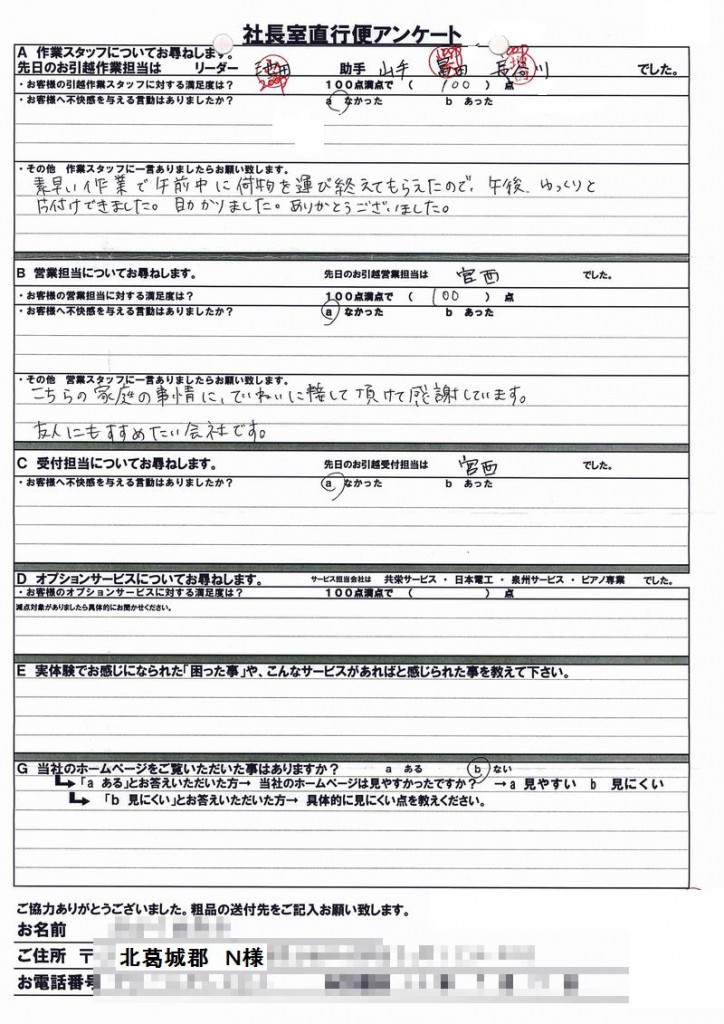 社長室直行便アンケート
A 作業スタッフについてお尋ねします。
先日のお引越作業担当は リーダー 池田 助手 山手 冨田 長谷川 でした。
・お客様の引越作業スタッフに対する満足度は? 100点満点で ( 100 ) 点
・お客様へ不快感を与える言動はありましたか? a なかった b あった
・その他 作業スタッフに一言ありましたらお願い致します。
素早い作業で午前中に荷物を運び終えてもらえたので、午後、ゆっくりと
片付けできました。助かりました。ありがとうございました。
B 営業担当についてお尋ねします。 先日のお引越営業担当は 宮西 でした。
・お客様の営業担当に対する満足度は? 100点満点で ( 100 ) 点
・お客様へ不快感を与える言動はありましたか? a なかった b あった
・その他 営業スタッフに一言ありましたらお願い致します。
こちらの家庭の事情に、ていねいに接して頂けて感謝しています。
友人にもすすめたい会社です。
C 受付担当についてお尋ねします。 先日のお引越受付担当は 宮西 でした。
・お客様へ不快感を与える言動はありましたか? a なかった b あった
D オプションサービスについてお尋ねします。 サービス担当会社は 共栄サービス ・ 日本電工 ・ 泉州サービス ・ ピアノ専業 でした。
・お客様のオプションサービスに対する満足度は? 100点満点で ( ) 点
減点対象がありましたら具体的にお聞かせください。
E 実体験でお感じになられた「困った事」や、こんなサービスがあればと感じられた事を教えて下さい。
G 当社のホームページをご覧いただいた事はありますか? a ある b ない
「a ある」とお答えいただいた方→ 当社のホームページは見やすかったですか? →a 見やすい b 見にくい
「b 見にくい」とお答えいただいた方→ 具体的に見にくい点を教えください。
ご協力ありがとうございました。粗品の送付先をご記入お願い致します。
お名前
ご住所 〒 北葛城郡 N様
お電話番号